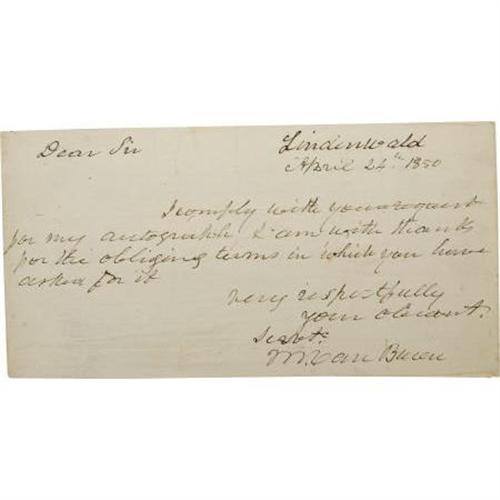 Dear Sir
Lindenwald
April 24th 1850
I comply with your request
for my autograph & am with thanks
for the obliging terms in which you have
asked for it
very respectfully
your obedient.
Servt.
M. Van Buren